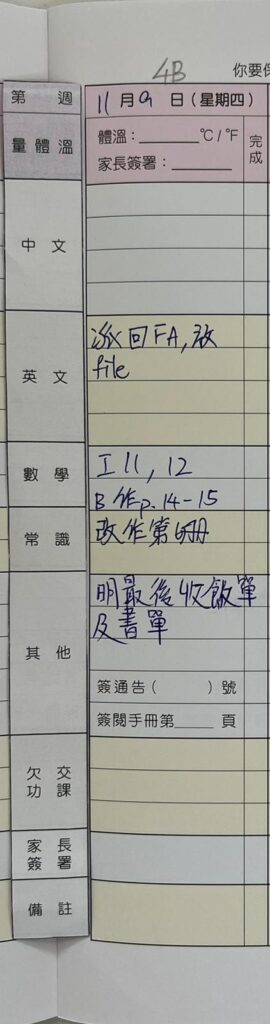 4B
你要
第 週
11 月 9 日 (星期四)
量體溫
體溫：______ °C / °F
家長簽署：______
完成
中 文
英 文
派回FA, 放
file
數 學
工11, 12
B作p.14-15
常 識
改作第6冊
其 他
明最後收飯單
及書單
簽通告 ( ) 號
簽閱手冊第____ 頁
欠 交
功 課
家 長
簽 署
備 註